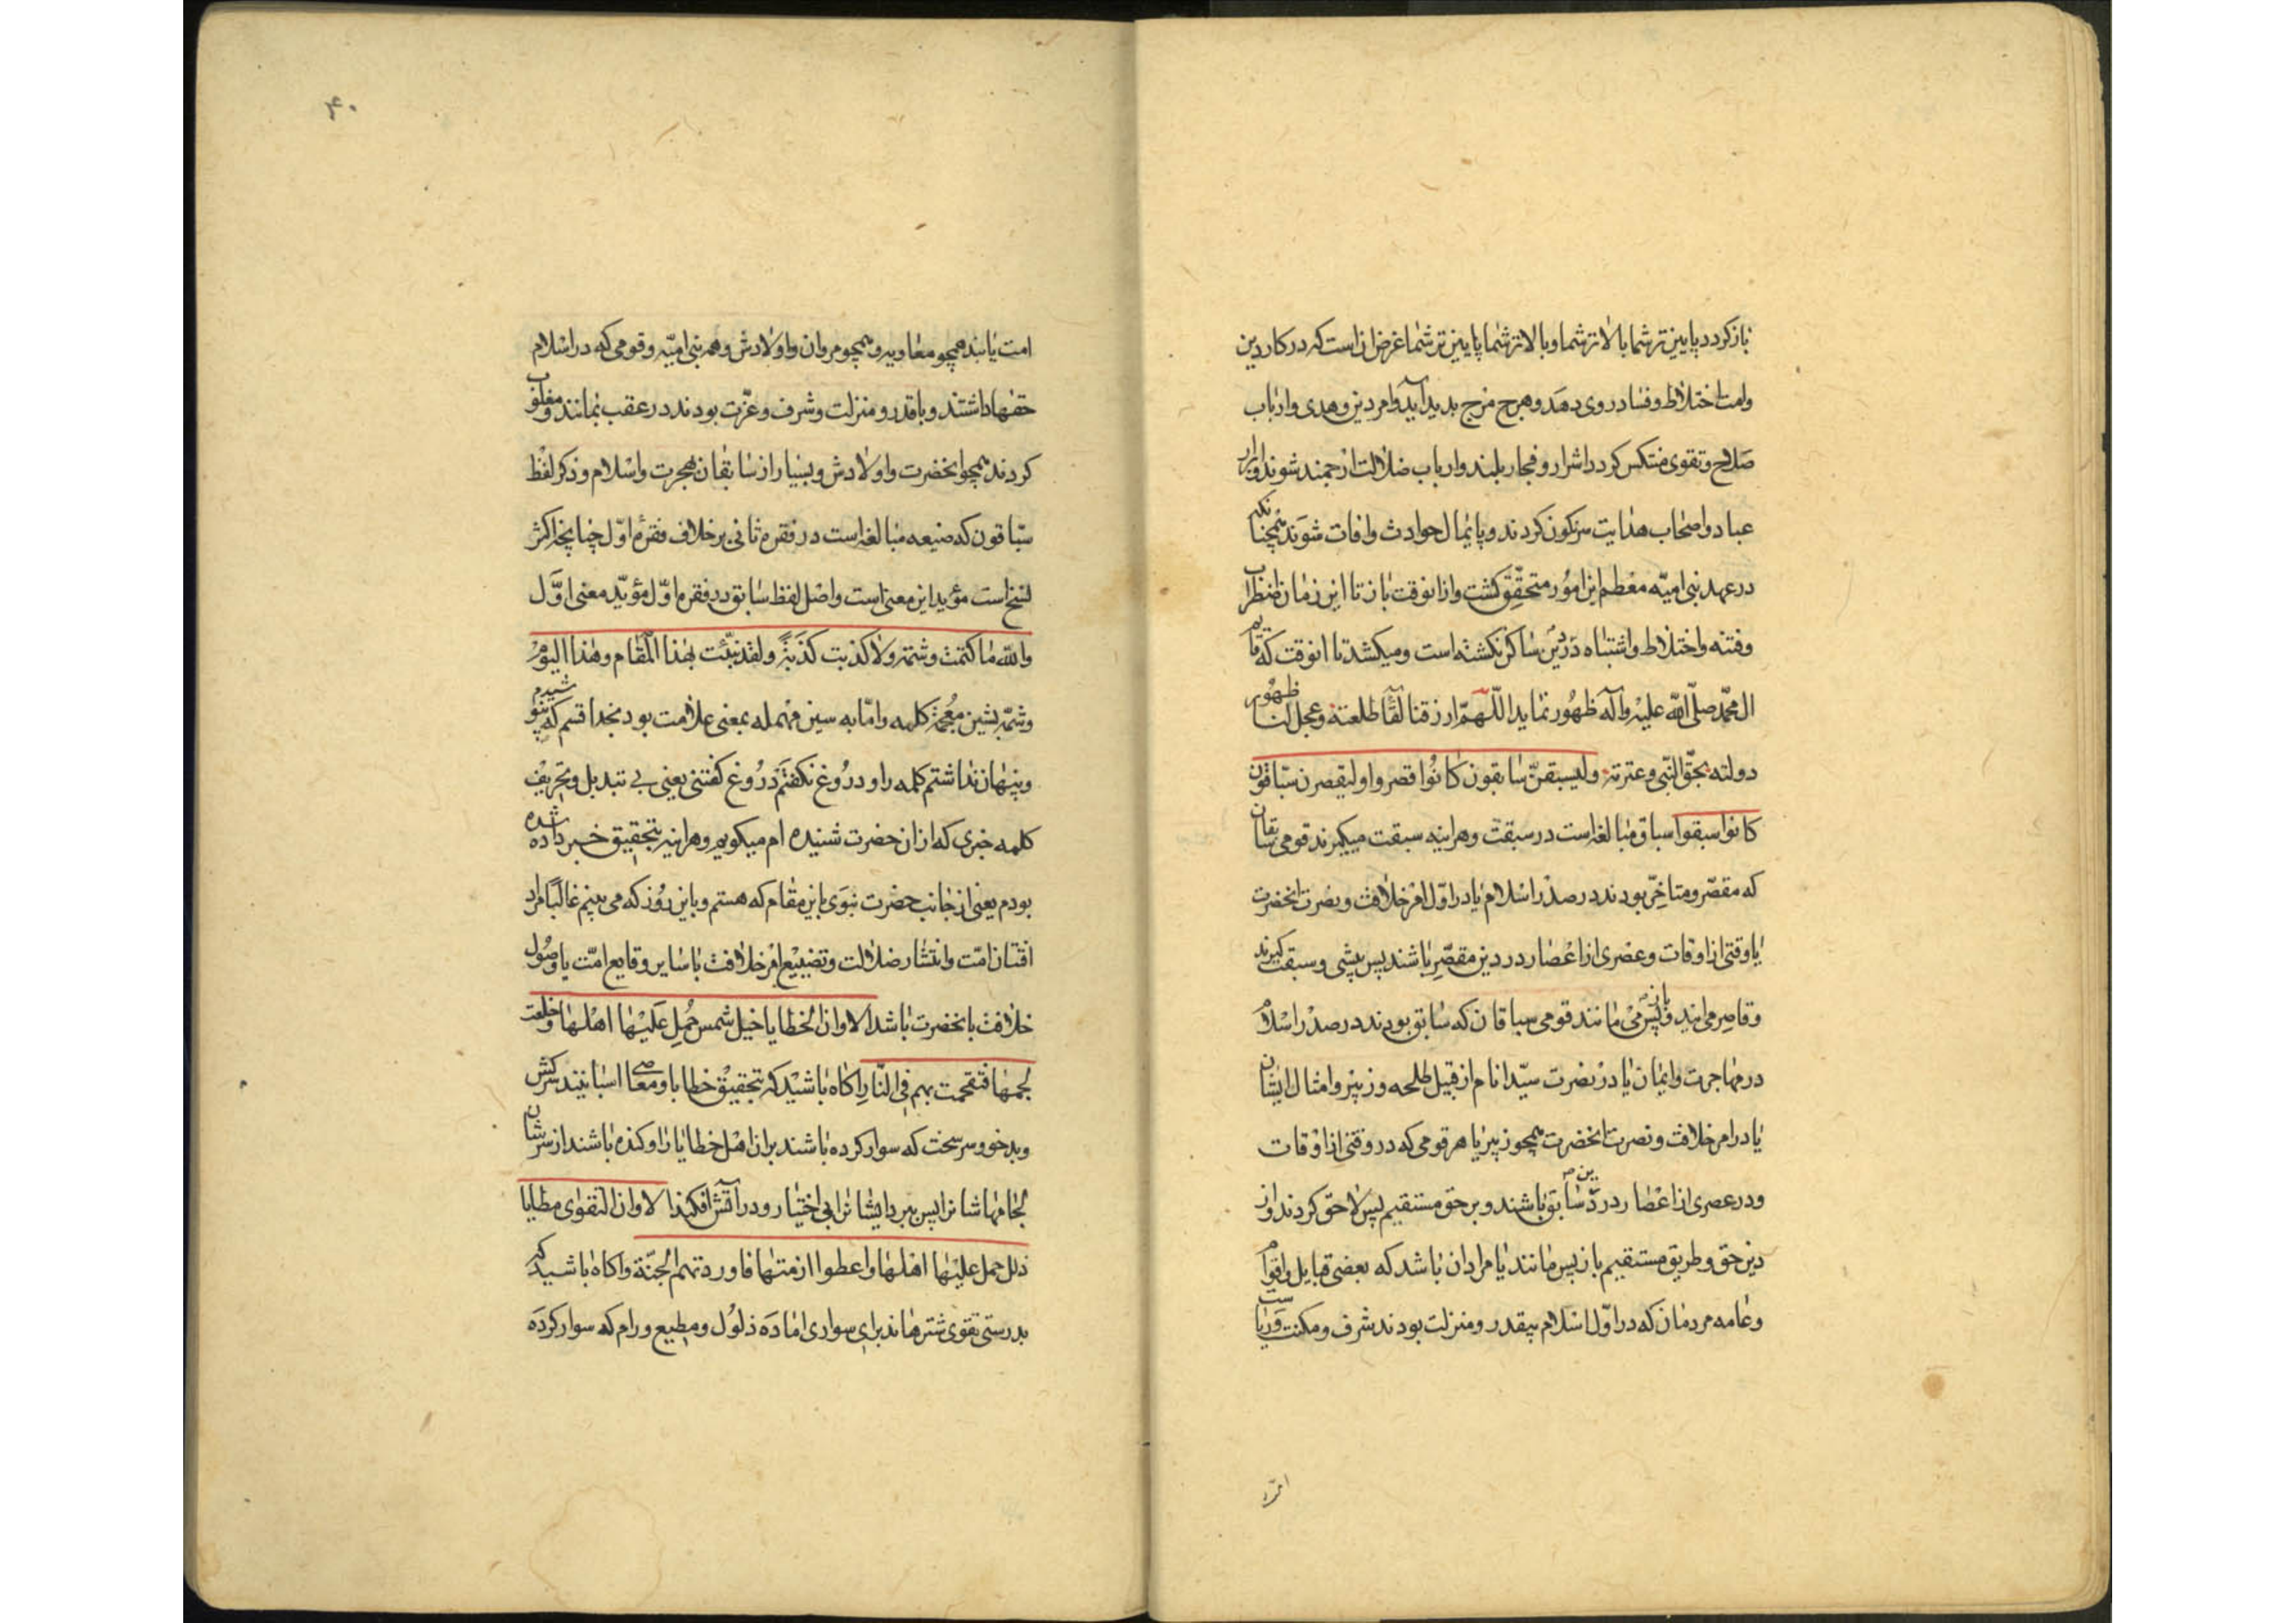 باز کردد پایین‌تر شما بالاتر شما و بالاتر شما پایین‌تر شما غرض ان است که در کار دین
و امت اختلاط و فساد روی دهد و هرج مرج بدید آید و امر دین و هدی و ارباب
صلاح و تقوی منتکس کردد اشرار و فجار بلند و ارباب ضلالت ارجمند شوند و ابرار
عباد و اصحاب هدایت سرنکون کردند و پایمال حوادث و افات شوند همچنانکه
در عهد بنی امیّه معظم این امور متحقّق کشت و از انوقت باز تا این زمان اضطراب
و فتنه و اختلاط و اشتباه در دین ساکن نکشته است و میکشد تا انوقت که قایم
ال محمّد صلّی الله علیه وآله ظهور نماید اللّهمّ ارزقنا لقآء طلعته و عجل لنا ظهور
دولته بحقّ النّبی و عترته ولیسبقنّ سابقون کانوا قصروا ولیقصرن سبّاقون
کانوا سبقوا سباق مبالغه است در سبقت و هراینه سبقت میکیرند قومی سابقان
که مقصّر و متاخّر بودند در صدر اسلام یا در اوّل امر خلافت و نصرت انحضرت
یا وقتی از اوقات و عصری از اعصار در دین مقصّر باشند پس پیشی و سبقت کیرند
و قاصر می‌ایند و باز پس می مانند قومی سباقان که سابق بودند در صدر اسلام
در مهاجرت و ایمان یا در نصرت سیّد انام از قبیل طلحه و زبیر و امثال ایشان
یا در امر خلافت و نصرت انحضرت همچو زبیر یا هر قومی که در وقتی از اوقات
و در عصری از اعصار در دین سابق باشند و بر حق مستقیم پس لاحق کردند و از
دین حق و طریق مستقیم باز پس مانند یا مراد ان باشد که بعضی قبایل و اقوام
و عامه مردمان که در اوّل اسلام بیقدر و منزلت بودند شرف و مکنت و ریاست
امت
۴۰
امت یابند همچو معاویه و همچو مروان و اولادش و همه بنی امیّه و قومی که در اسلام
حقها داشتند و با قدر و منزلت و شرف و عزّت بودند در عقب بمانند و مغلوب
کردند همچو انحضرت و اولادش و بسیار از سابقان هجرت و اسلام و ذکر لفظ
سبّاقون که صیغه مبالغه است در فقره ثانی بر خلاف فقرهٔ اوّل چنانچه اکثر
نسخ است مؤید این معنی است و اصل لفظ سابق در فقره اوّل مؤیّد معنی اوّل
والله ما کتمت وشمة ولا کذبت کذبة ولقد نبّئت بهذا المقام وهذا الیوم
وشمة بشین معجمة کلمه و امّا به سین مهمله بمعنی علامت بود بخدا قسم که نپوشیدم
و پنهان نداشتم کلمه را و دروغ نکفتم دروغ کفتنی یعنی بی تبدیل و تحریف
کلمه خبری که از ان حضرت شنیده ام میکویم و هراینه بتحقیق خبر داده شده
بودم یعنی از جانب حضرت نبوی باین مقام که هستم و باین روز که می بینم غالبًا مراد
افتتان امّت و انتشار ضلالت و تضییع امر خلافت با سایر وقایع امّت یا وصول
خلافت بانحضرت باشد الا وان الخطایا خیل شمس حُمِل عَلیها اهلها وخلعت
لجمها فتقحمت بهم فی النّار اکاه باشید که تحقیق خطایا و معاصی اسبانیند سرکش
و بدخو و سرسخت که سوار کرده باشند بر ان اهل خطایا را و کنده باشند از سرشان
لجامها شانرا پس ببرد ایشانرا بی اختیار و در آتش افکند الا وان التقوی مطایا
ذلل حمل علیها اهلها واعطوا ازمتها فاوردتهم الجنّة و اکاه باشید که
بدرستی تقوی شترهااند برای سواری اماده ذلول و مطیع و رام که سوار کرده